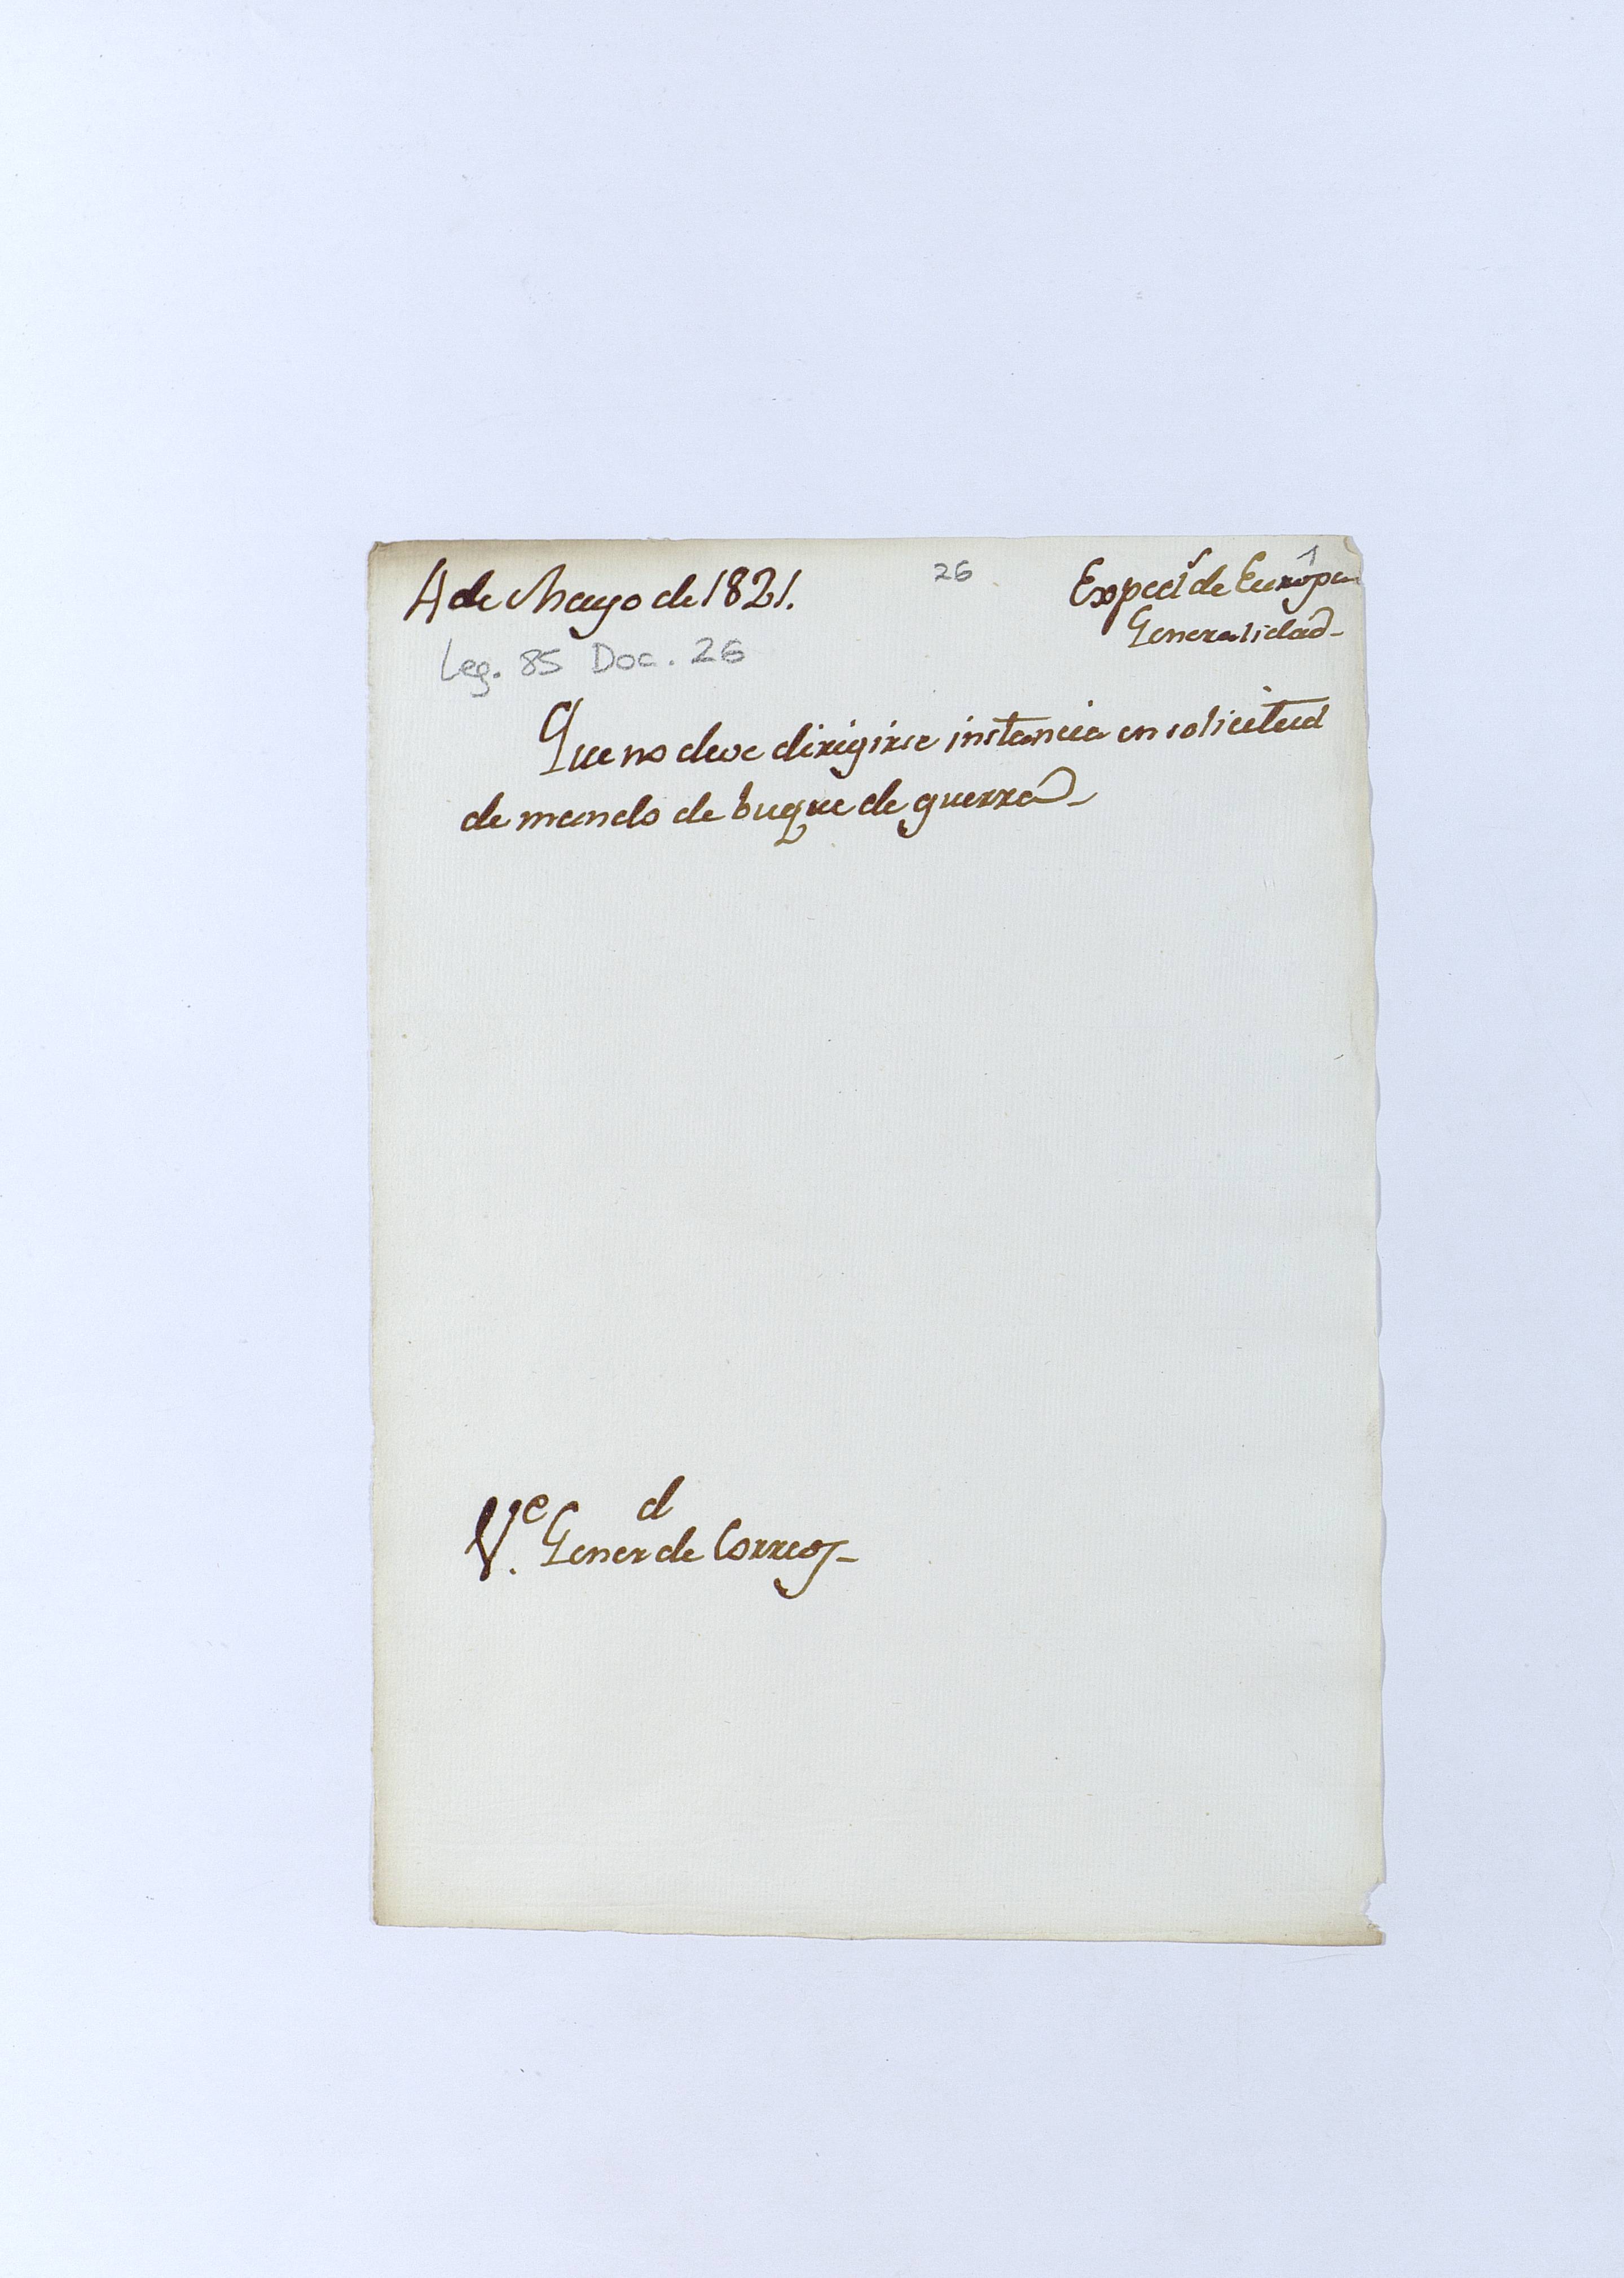 4 de Mayo de 1821.
26
Exped.<sup>s</sup> de Európa
Generalidad
Leg. 85 Doc. 26
Que no deve dirigirse instancia en solicitud
de mando de buque de guerra
V.e
Gener de Correos